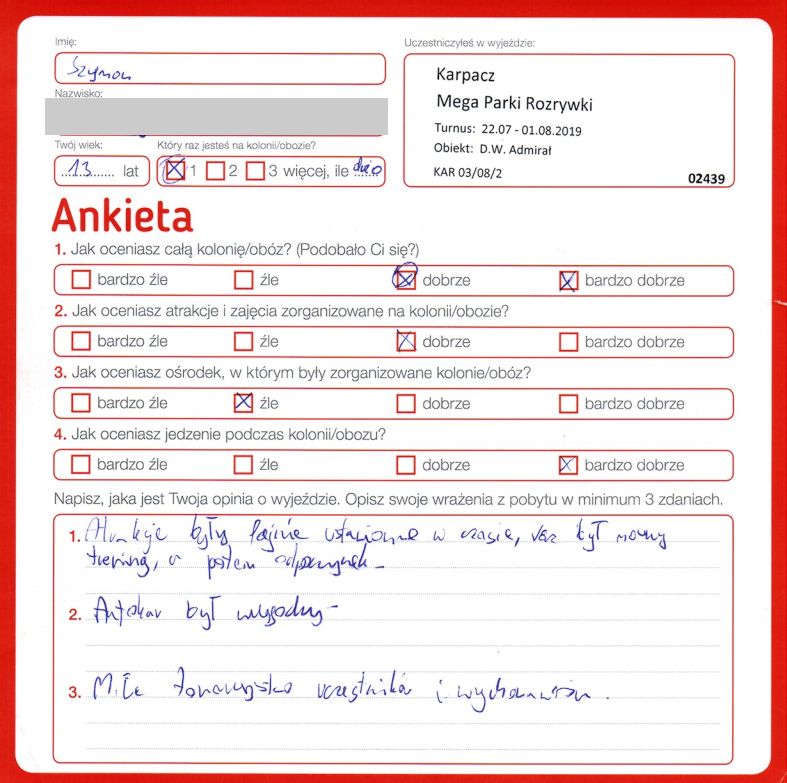 Imię:
Szymon
Nazwisko:
Twój wiek:
13 lat
Który raz jesteś na kolonii/obozie?
1 2 3 więcej, ile dużo
Uczestniczyłeś w wyjeździe:
Karpacz
Mega Parki Rozrywki
Turnus: 22.07 - 01.08.2019
Obiekt: D.W. Admirał
KAR 03/08/2
02439
Ankieta
1. Jak oceniasz całą kolonię/obóz? (Podobało Ci się?)
bardzo źle źle dobrze bardzo dobrze
2. Jak oceniasz atrakcje i zajęcia zorganizowane na kolonii/obozie?
bardzo źle źle dobrze bardzo dobrze
3. Jak oceniasz ośrodek, w którym były zorganizowane kolonie/obóz?
bardzo źle źle dobrze bardzo dobrze
4. Jak oceniasz jedzenie podczas kolonii/obozu?
bardzo źle źle dobrze bardzo dobrze
Napisz, jaka jest Twoja opinia o wyjeździe. Opisz swoje wrażenia z pobytu w minimum 3 zdaniach.
1. Atrakcje były fajnie ustawione w czasie, raz był mocny
trening, a potem odpoczynek
2. Autokar był wygodny
3. Miłe towarzystwo uczestników i wychowawców.